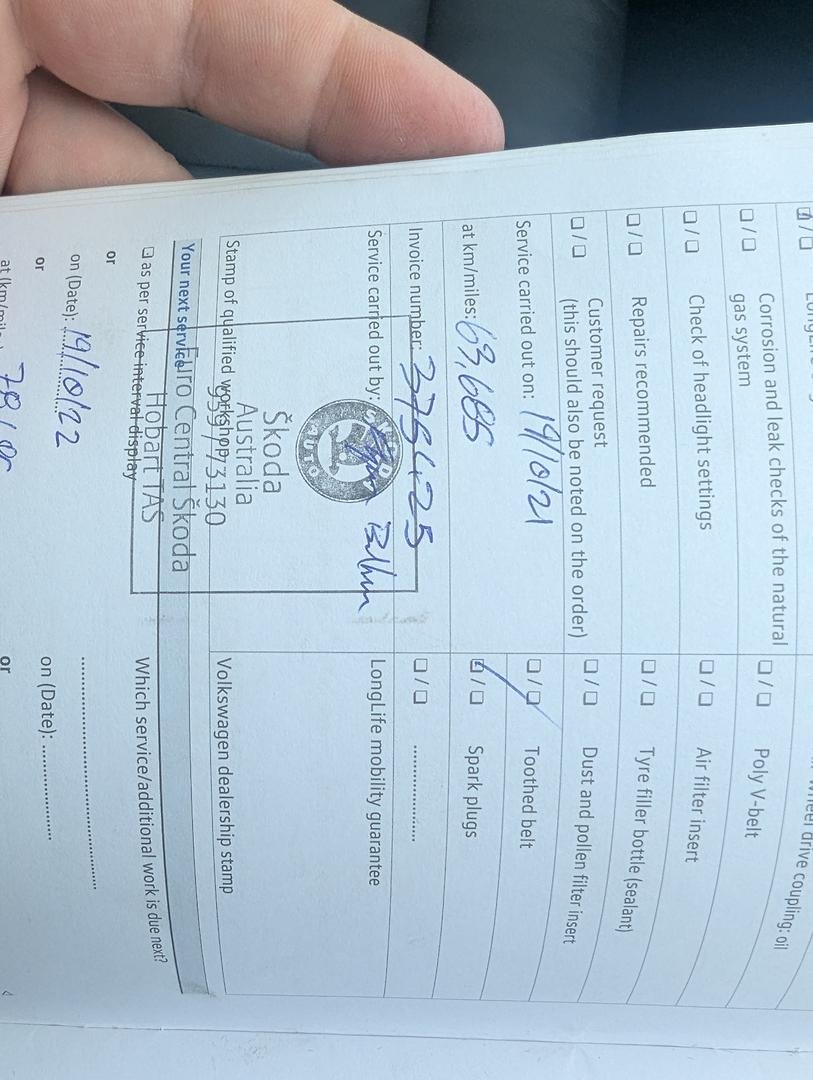 Corrosion and leak checks of the natural
gas system
Check of headlight settings
Repairs recommended
Customer request
(this should also be noted on the order)
Service carried out on: 19/10/21
at km/miles: 63,685
Invoice number: 375425
Service carried out by:
Stamp of qualified workshop
Škoda
Australia
Euro Central Škoda
Hobart TAS
Your next service
as per service interval display
or
on (Date): 19/10/22
or
at (km/miles)
wheel drive coupling: oil
Poly V-belt
Air filter insert
Tyre filler bottle (sealant)
Dust and pollen filter insert
Toothed belt
Spark plugs
LongLife mobility guarantee
Volkswagen dealership stamp
Which service/additional work is due next?
on (Date):
or